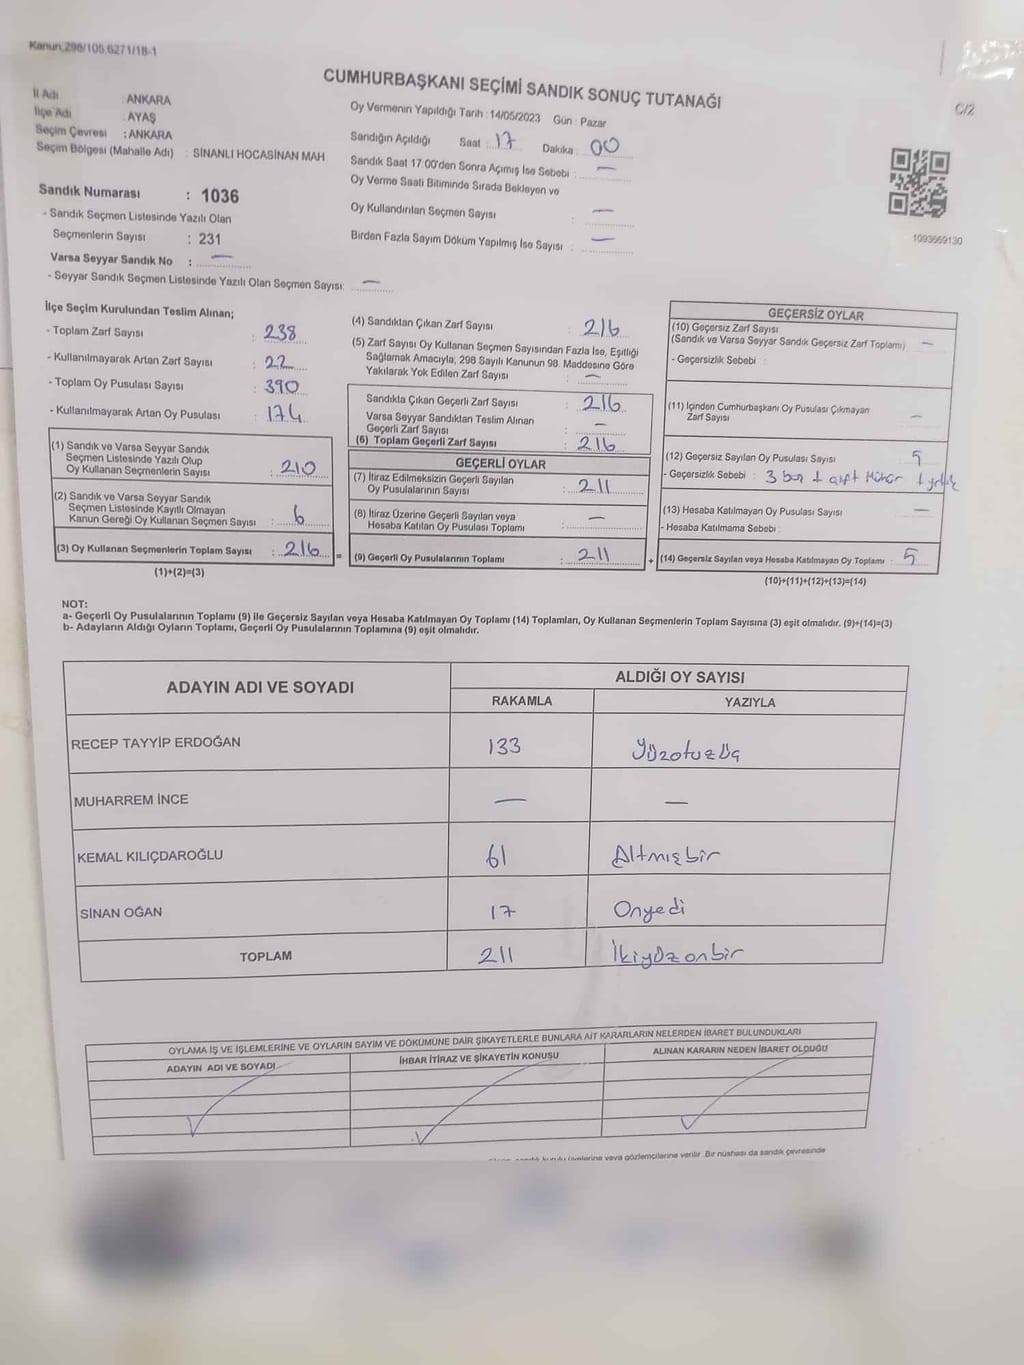 Kanun,298/105,6271/18-1
CUMHURBAŞKANI SEÇİMİ SANDIK SONUÇ TUTANAĞI
C/2
İl Adı : ANKARA
İlçe Adı : AYAŞ
Seçim Çevresi : ANKARA
Seçim Bölgesi (Mahalle Adı) : SİNANLI HOCASİNAN MAH
Sandık Numarası : 1036
- Sandık Seçmen Listesinde Yazılı Olan
Seçmenlerin Sayısı : 231
Varsa Seyyar Sandık No : —
- Seyyar Sandık Seçmen Listesinde Yazılı Olan Seçmen Sayısı: —
Oy Vermenin Yapıldığı Tarih : 14/05/2023 Gün : Pazar
Sandığın Açıldığı Saat : 17 Dakika : 00
Sandık Saat 17:00'den Sonra Açımış İse Sebebi : —
Oy Verme Saati Bitiminde Sırada Bekleyen ve
Oy Kullandırılan Seçmen Sayısı : —
Birden Fazla Sayım Döküm Yapılmış İse Sayısı : —
1093669130
İlçe Seçim Kurulundan Teslim Alınan;
- Toplam Zarf Sayısı : 238
- Kullanılmayarak Artan Zarf Sayısı : 22
- Toplam Oy Pusulası Sayısı : 390
- Kullanılmayarak Artan Oy Pusulası : 174
(1) Sandık ve Varsa Seyyar Sandık
Seçmen Listesinde Yazılı Olup
Oy Kullanan Seçmenlerin Sayısı : 210
(2) Sandık ve Varsa Seyyar Sandık
Seçmen Listesinde Kayıtlı Olmayan
Kanun Gereği Oy Kullanan Seçmen Sayısı : 6
(3) Oy Kullanan Seçmenlerin Toplam Sayısı : 216 =
(1)+(2)=(3)
(4) Sandıktan Çıkan Zarf Sayısı : 216
(5) Zarf Sayısı Oy Kullanan Seçmen Sayısından Fazla İse, Eşitliği
Sağlamak Amacıyla; 298 Sayılı Kanunun 98. Maddesine Göre
Yakılarak Yok Edilen Zarf Sayısı : —
Sandıkta Çıkan Geçerli Zarf Sayısı : 216
Varsa Seyyar Sandıktan Teslim Alınan
Geçerli Zarf Sayısı : —
(6) Toplam Geçerli Zarf Sayısı : 216
GEÇERLİ OYLAR
(7) İtiraz Edilmeksizin Geçerli Sayılan
Oy Pusulalarının Sayısı : 211
(8) İtiraz Üzerine Geçerli Sayılan veya
Hesaba Katılan Oy Pusulası Toplamı : —
(9) Geçerli Oy Pusulalarının Toplamı : 211 +
GEÇERSİZ OYLAR
(10) Geçersiz Zarf Sayısı
(Sandık ve Varsa Seyyar Sandık Geçersiz Zarf Toplamı) —
- Geçersizlik Sebebi :
(11) İçinden Cumhurbaşkanı Oy Pusulası Çıkmayan
Zarf Sayısı : —
(12) Geçersiz Sayılan Oy Pusulası Sayısı : 5
- Geçersizlik Sebebi : 3 boş 1 çift Mühür 1
(13) Hesaba Katılmayan Oy Pusulası Sayısı : —
- Hesaba Katılmama Sebebi :
(14) Geçersiz Sayılan veya Hesaba Katılmayan Oy Toplamı : 5
(10)+(11)+(12)+(13)=(14)
NOT:
a- Geçerli Oy Pusulalarının Toplamı (9) ile Geçersiz Sayılan veya Hesaba Katılmayan Oy Toplamı (14) Toplamları, Oy Kullanan Seçmenlerin Toplam Sayısına (3) eşit olmalıdır. (9)+(14)=(3)
b- Adayların Aldığı Oyların Toplamı, Geçerli Oy Pusulalarının Toplamına (9) eşit olmalıdır.
ADAYIN ADI VE SOYADI ALDIĞI OY SAYISI
RAKAMLA YAZIYLA
RECEP TAYYİP ERDOĞAN 133 Yüzotuzüç
MUHARREM İNCE — —
KEMAL KILIÇDAROĞLU 61 Altmışbir
SİNAN OĞAN 17 Onyedi
TOPLAM 211 İkiyüzonbir
OYLAMA İŞ VE İŞLEMLERİNE VE OYLARIN SAYIM VE DÖKÜMÜNE DAİR ŞİKAYETLERLE BUNLARA AİT KARARLARIN NELERDEN İBARET BULUNDUKLARI
ADAYIN ADI VE SOYADI İHBAR İTİRAZ VE ŞİKAYETİN KONUSU ALINAN KARARIN NEDEN İBARET OLDUĞU
sandık kurulu üyelerine veya gözlemcilerine verilir. Bir nüshası da sandık çevresinde